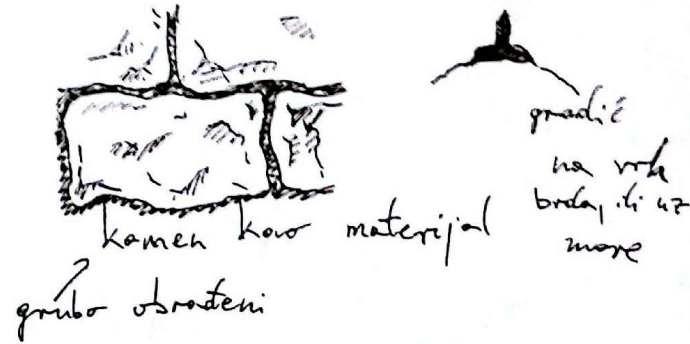 gradić
na vrh
brda, ili uz
more
kamen kao materijal
grubo obrađeni